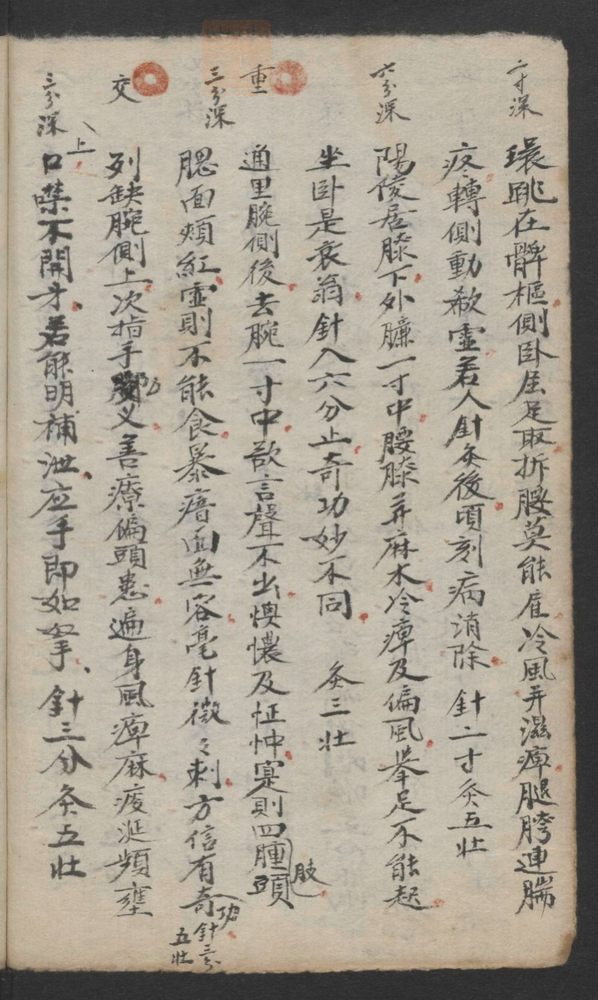 二寸深
環跳在髀樞側卧屈足取折腰莫能雇冷風并濕痺腿胯連腨
疼轉側動欷歔若人針灸後頃刻病消除 針二寸灸五壮
六分深
陽陵居膝下外臁一寸中腰膝并麻木冷痺及偏風举足不能起
坐卧是衰翁針入六分止奇功妙不同 灸三壮
重
通里腕側後去腕一寸中欲言聲不出懊憹及怔忡寔則四腫頭
肢
三分深
腮面頰紅虛則不能食暴瘖面無容毫針微々刺方信有奇功 針三分
五壮
交
列缺腕側上次指手交叉善療偏頭患遍身風痺麻痰涎頻壅
上
三分深
口噤不開牙若能明補泄应手即如拏 針三分灸五壮